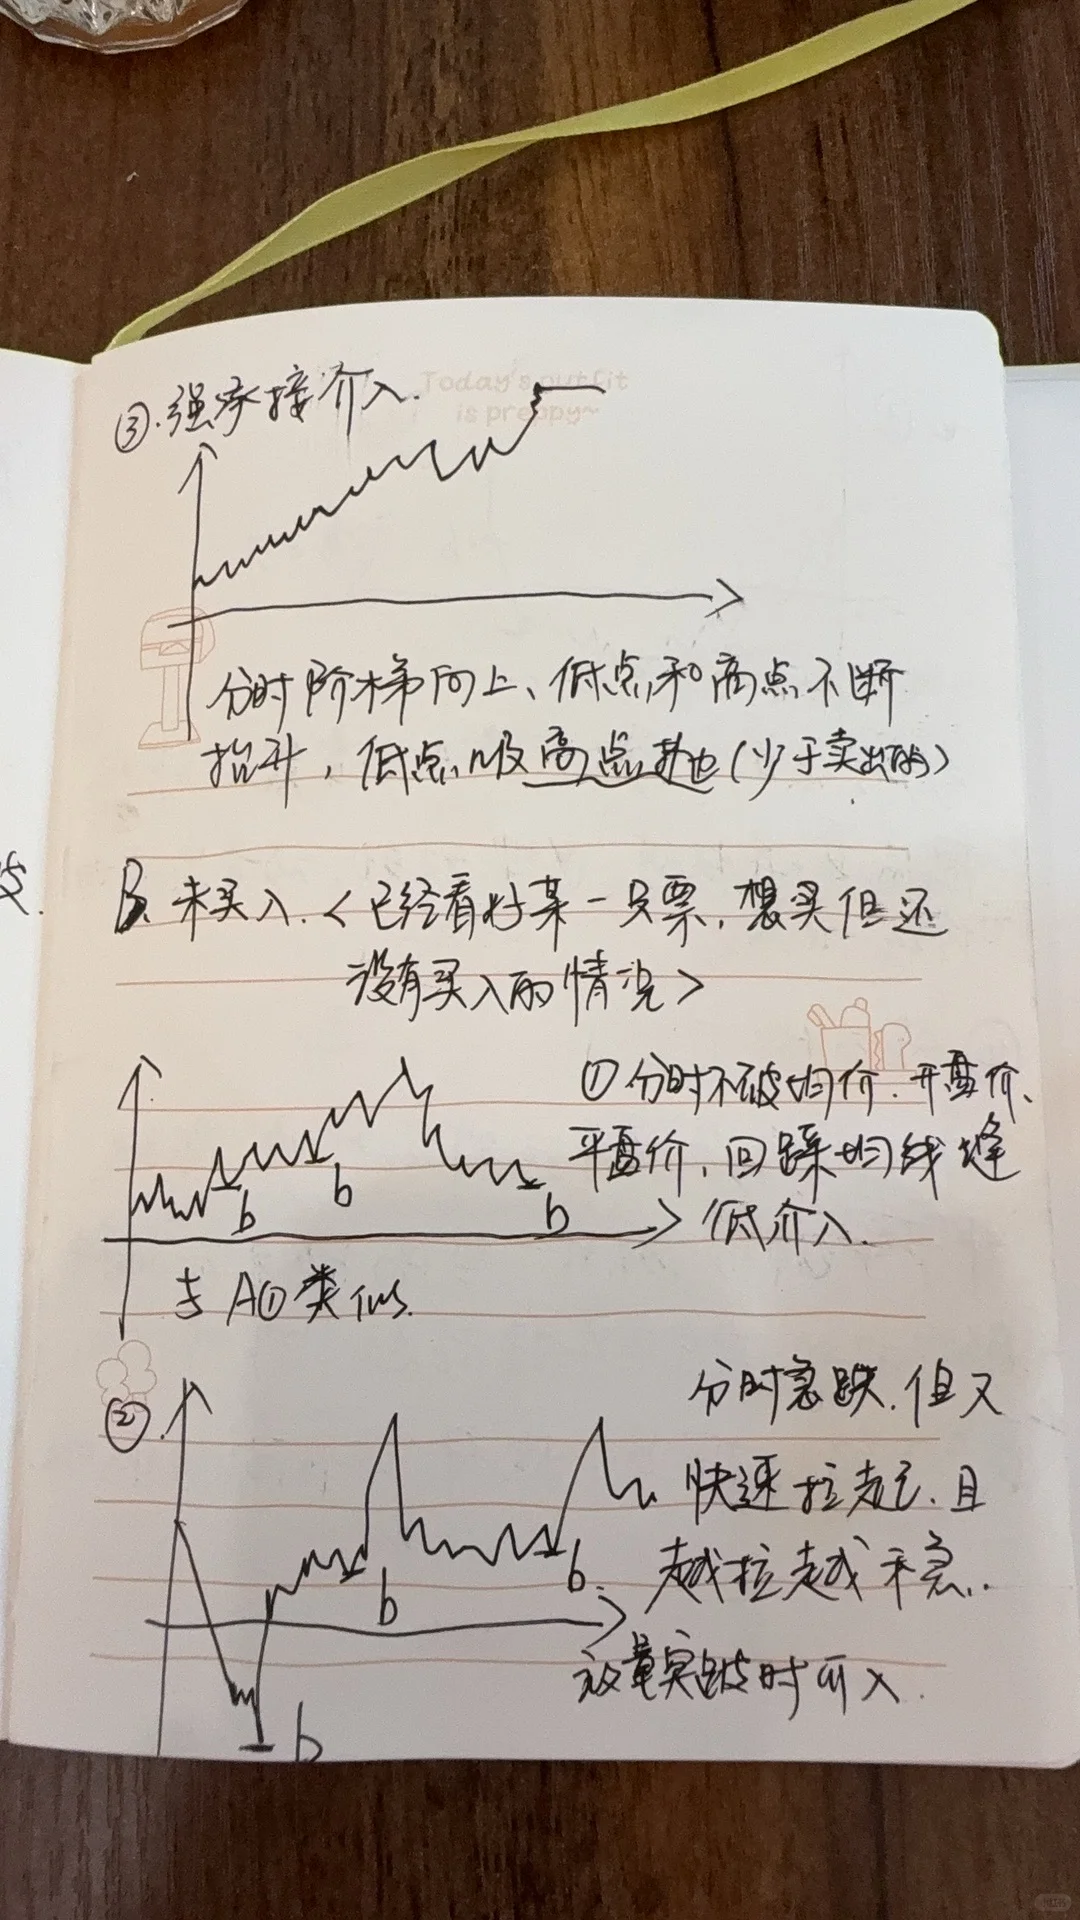 Today's outfit
is preppy~
③.强承接介入.
分时阶梯向上、低点和高点不断
抬升，低点吸高点抛(少于卖出的)
B. 未买入.<已经看好某一只票,想买但还
没有买入的情况>
①分时不破均价.开盘价、
平盘价,回踩均线逢
低介入.
b
b
b
与A①类似.
②
分时急跌.但又
快速拉起.且
越拉越平急..
放量突破时介入.
b
b.
b